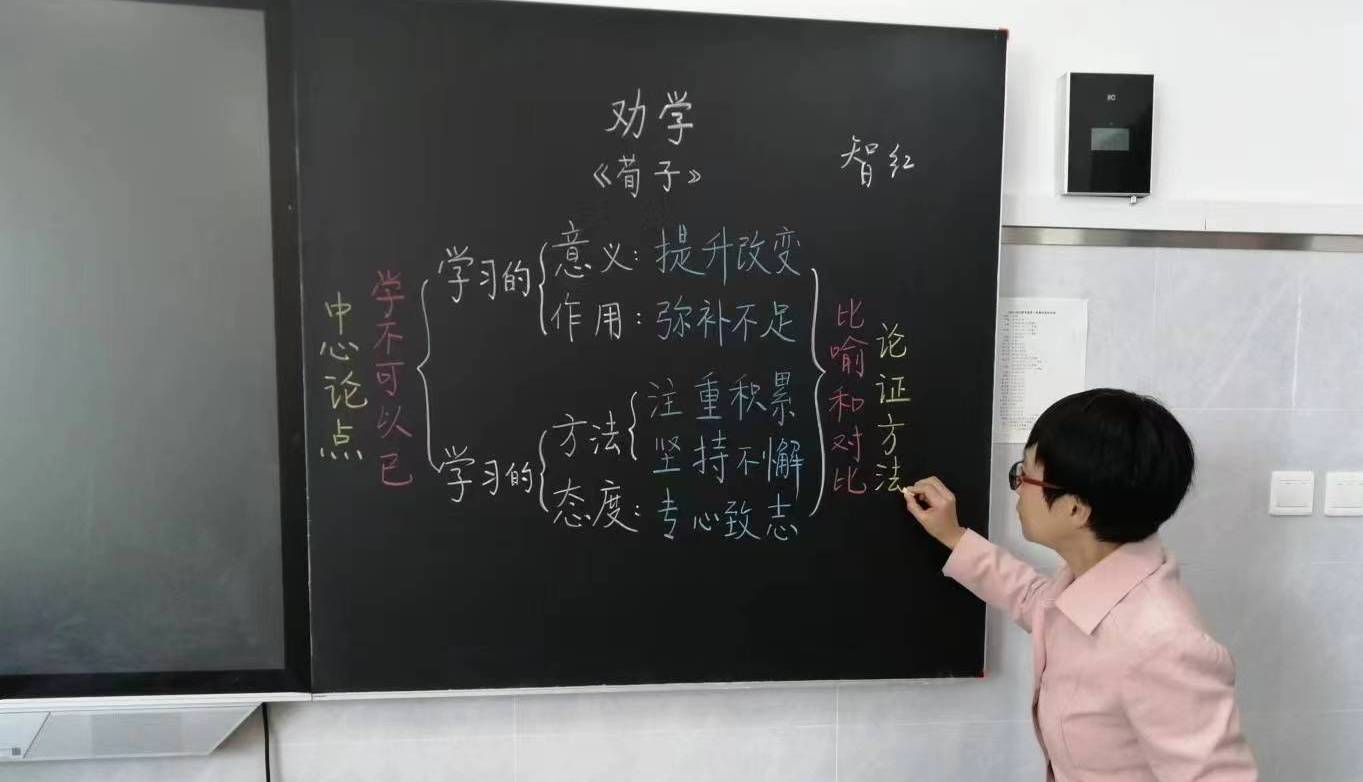 劝学
《荀子》
智红
中心论点
学不可以已
学习的
意义：提升改变
作用：弥补不足
学习的
方法
注重积累
坚持不懈
态度：专心致志
比喻和对比
论证方法